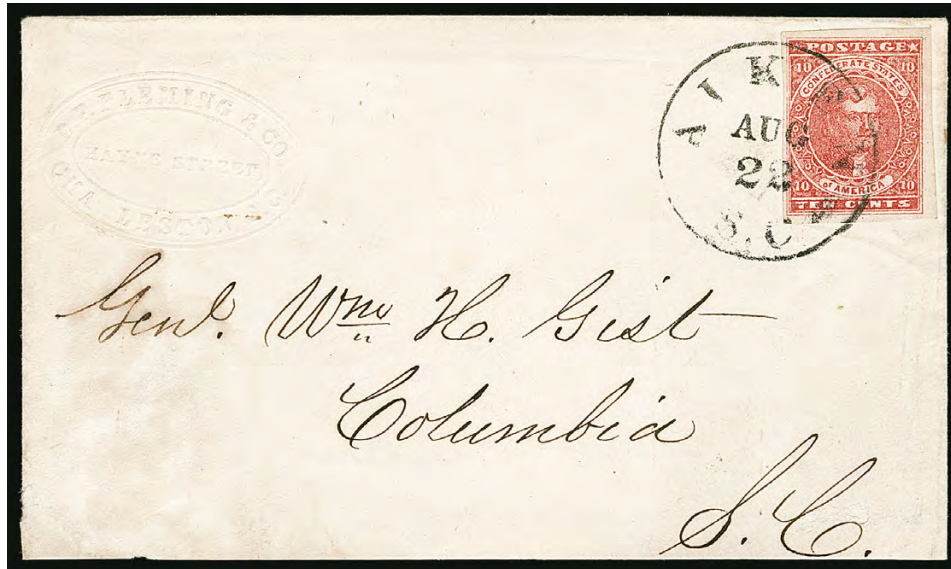 FLEMING & CO.
HAYNE STREET
CHA LESTON
AIKEN
AUG
22
S.C.
POSTAGE
10 10
CONFEDERATE STATES
of AMERICA
10 10
TEN CENTS
Genl. Wm H. Gist
Columbia
S. C.